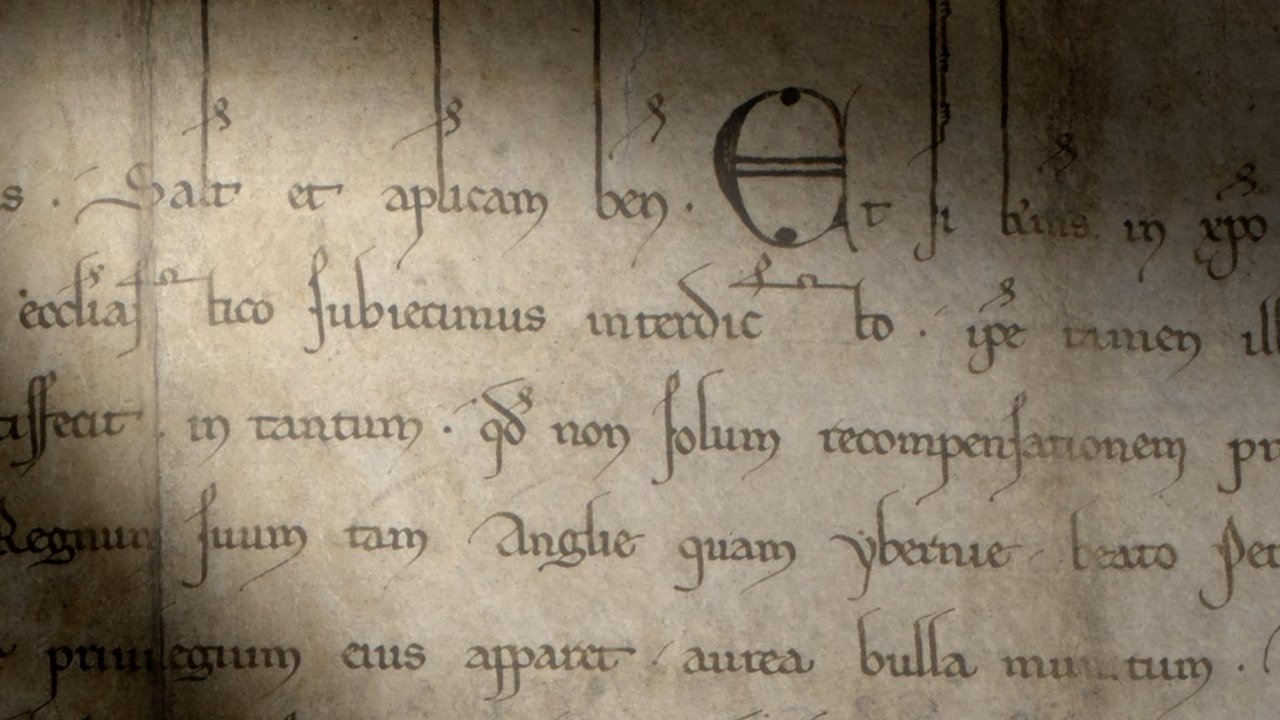 s . Salt et aplicam ben . Et si in xpo
eccliastico subiecimus interdicto . ipe tamen ill
tissfecit in tantum . qd non solum recompensationem pr
Regnum suum tam Anglie quam ybernie beato Pet
privilegium eius apparet aurea bulla munitum .